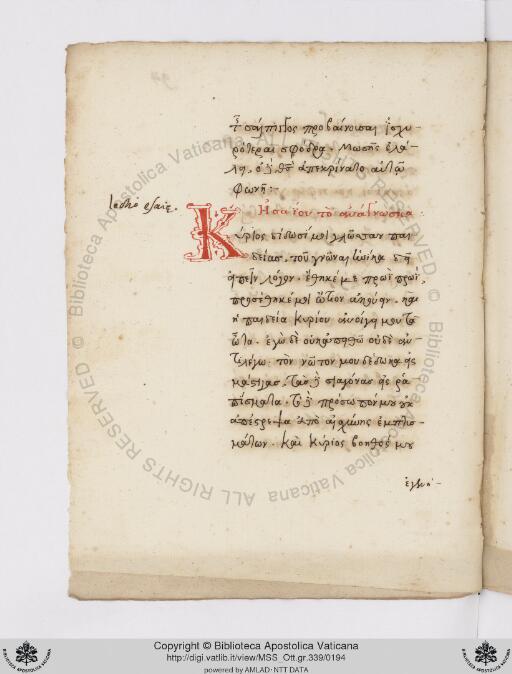 τ σάλπιγγος προβαίνουσαι ἰσχυ-
ρότεραι σφόδρα. Μωσῆς ἐλά-
λη. ὁ δὲ θς ἀπεκρίνατο αὐτῶ
φωνῆ:-
Ἡσαΐου τὸ ἀνάγνωσμα.
lectio esaie.
Κύριος δίδωσί μοι γλῶσσαν παι
δείας. τοῦ γνῶναι ἡνίκα δεῖ
εἰπεῖν λόγον. ἔθηκέ με πρωῒ πρωΐ,
προσέθηκέ μοι ὠτίον ἀκούειν. καὶ
ἡ παιδεία Κυρίου ἀνοίγει μου τὰ
ὦτα. ἐγὼ δὲ οὐκ ἀπειθῶ οὐδὲ ἀν
τιλέγω. τὸν νῶτον μου δέδωκα εἰς
μάστιγας. τὰς δὲ σιαγόνας εἰς ῥα
πίσματα. τὸ δὲ πρόσωπόν μου οὐκ
ἀπέστρεψα ἀπὸ αἰσχύνης ἐμπτυσ
μάτων. καὶ Κύριος βοηθός μου
ἐγεν-
Copyright © Biblioteca Apostolica Vaticana
http://digi.vatlib.it/view/MSS_Ott.gr.339/0194
powered by AMLAD-NTT DATA
BIBLIOTECA APOSTOLICA VATICANA
BIBLIOTECA APOSTOLICA VATICANA
© Biblioteca Apostolica Vaticana ALL RIGHTS RESERVED